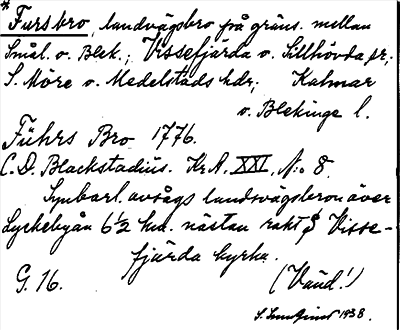 * Fursbro, landsvägsbro på gräns. mellan
Smål. o. Blek.; Vissefjärda o. Sillhövda sr;
S. Möre o. Medelstads hdr; Kalmar
o. Blekinge l.
Führs Bro 1776.
C. D. Blackstadius. Kr. A. XXI, N:o 8.
Synbarl. avsågs landsvägsbron över
Lyckebyån 6½ km. nästan rakt S Visse-
fjärda kyrka.
G. 16. (Vänd!)
1938.